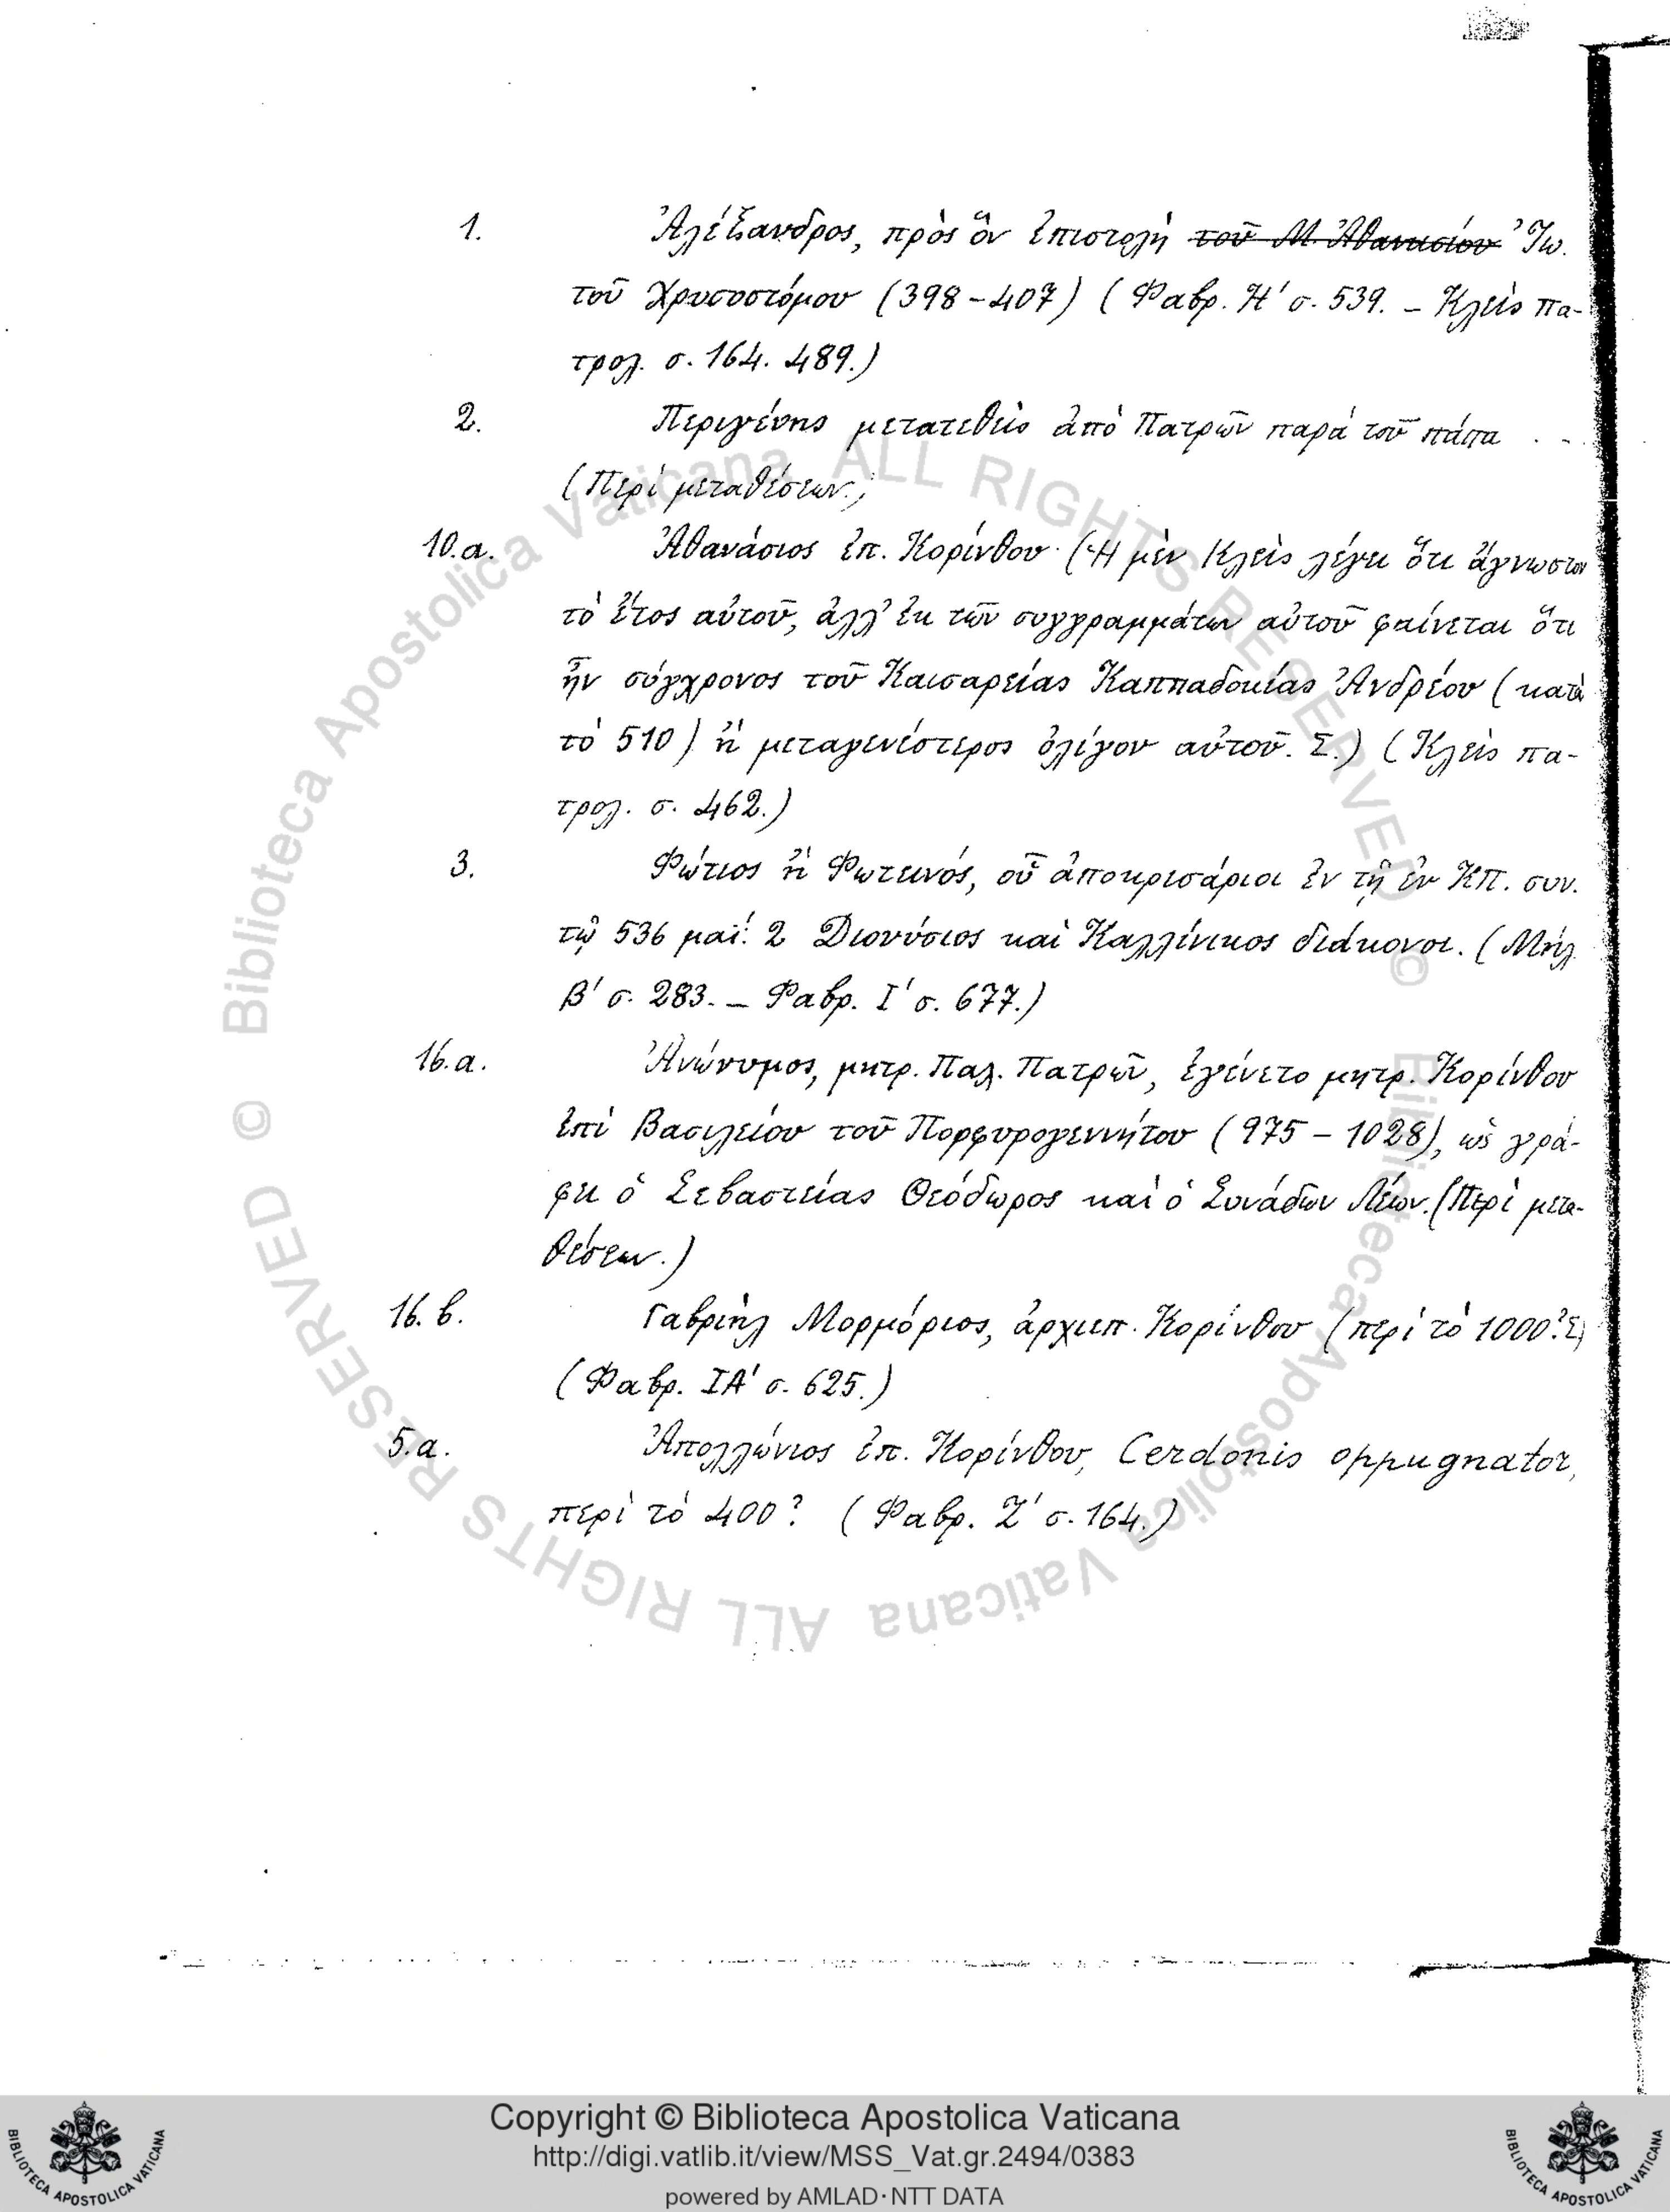 1. Ἀλέξανδρος, πρὸς ὃν ἐπιστολὴ τοῦ Μ. Ἀθανασίου Ἰω.
τοῦ Χρυσοστόμου (398-407) (Φαβρ. Η' σ. 539. - Κλεὶς πα-
τρολ. σ. 164. 489.)
2. Περιγένης μετατεθεὶς ἀπὸ Πατρῶν παρὰ τοῦ πάπα . . .
(Περὶ μεταθέσεων.)
10.α. Ἀθανάσιος ἐπ. Κορίνθου. (Ἡ μὲν Κλεὶς λέγει ὅτι ἄγνωστον
τὸ ἔτος αὐτοῦ, ἀλλ' ἐκ τῶν συγγραμμάτων αὐτοῦ φαίνεται ὅτι
ἦν σύγχρονος τοῦ Καισαρείας Καππαδοκίας Ἀνδρέου (κατὰ
τὸ 510) ἢ μεταγενέστερος ὀλίγον αὐτοῦ. Σ.) (Κλεὶς πα-
τρολ. σ. 462.)
3. Φώτιος ἢ Φωτεινός, οὗ ἀποκρισάριοι ἐν τῇ ἐν ΚΠ. συν.
τῷ 536 μαΐ. 2 Διονύσιος καὶ Καλλίνικος διάκονοι. (Μήλ.
β' σ. 283. - Φαβρ. Ι' σ. 677.)
16.α. Ἀνώνυμος, μητρ. Παλ. Πατρῶν, ἐγένετο μητρ. Κορίνθου
ἐπὶ Βασιλείου τοῦ Πορφυρογεννήτου (975-1028), ὡς γρά-
φει ὁ Σεβαστείας Θεόδωρος καὶ ὁ Συνάδων Λέων. (Περὶ μετα-
θέσεων.)
16.β. Γαβριὴλ Μορμόριος, ἀρχιεπ. Κορίνθου (περὶ τὸ 1000? Σ)
(Φαβρ. ΙΑ' σ. 625.)
5.α. Ἀπολλώνιος ἐπ. Κορίνθου, Cerdonis oppugnator,
περὶ τὸ 400? (Φαβρ. Ζ' σ. 164.)
© Biblioteca Apostolica Vaticana ALL RIGHTS RESERVED
© Biblioteca Apostolica Vaticana ALL RIGHTS RESERVED
Copyright © Biblioteca Apostolica Vaticana
http://digi.vatlib.it/view/MSS_Vat.gr.2494/0383
powered by AMLAD·NTT DATA
BIBLIOTECA APOSTOLICA VATICANA
BIBLIOTECA APOSTOLICA VATICANA